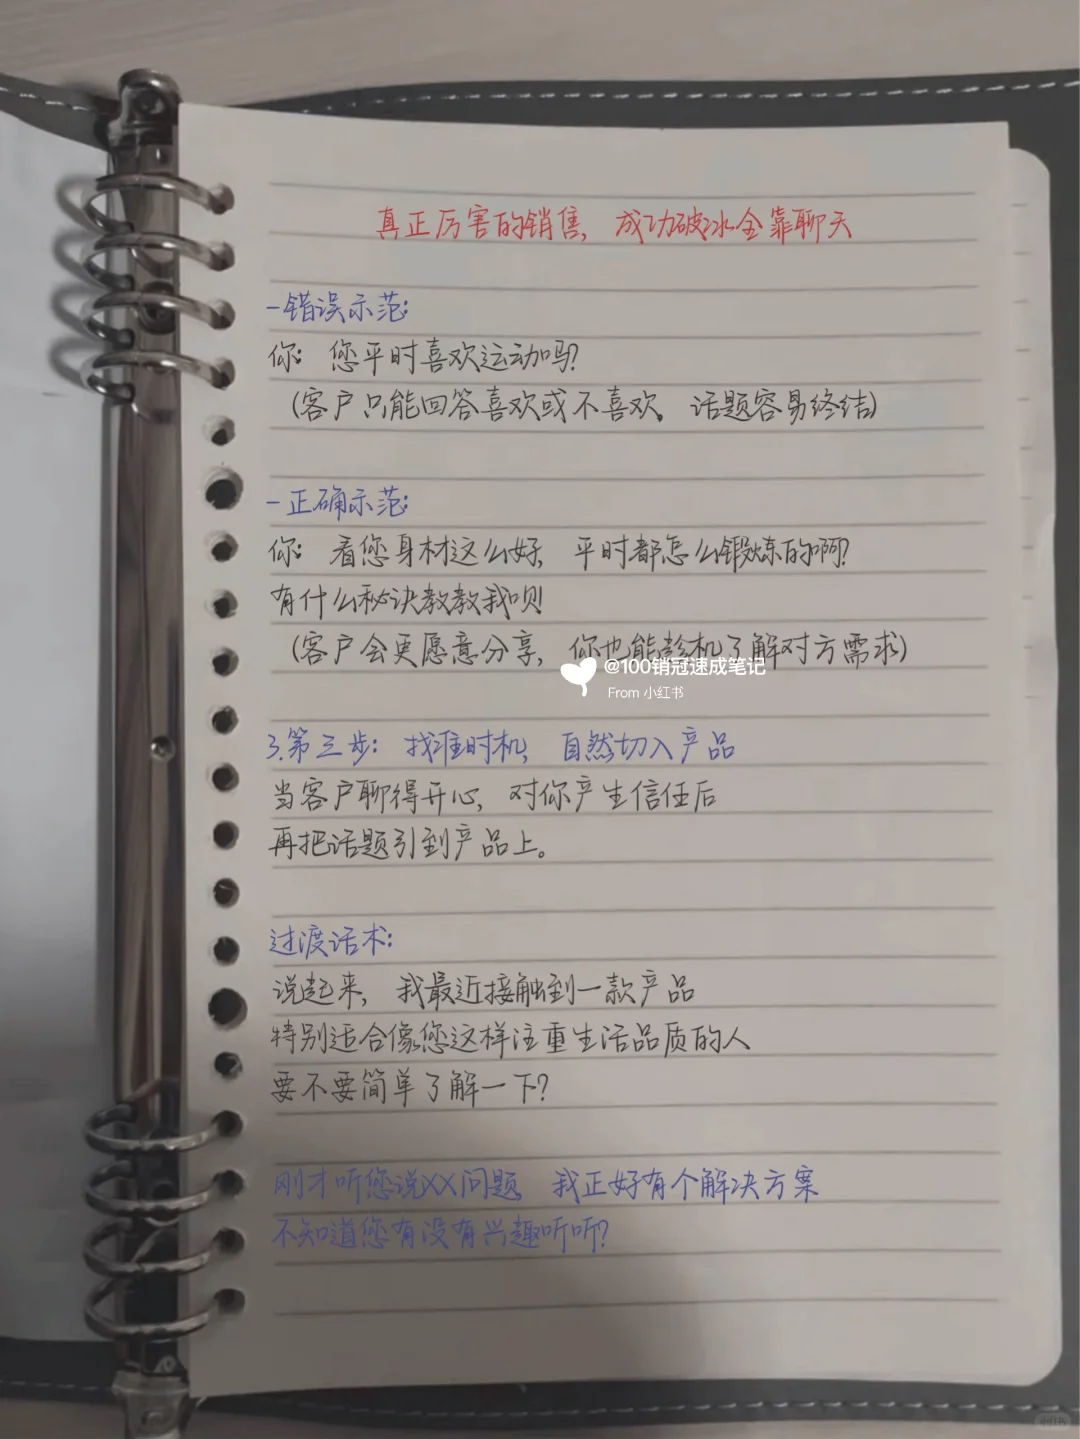 真正厉害的销售，成功破冰全靠聊天
-错误示范：
你：您平时喜欢运动吗？
（客户只能回答喜欢或不喜欢，话题容易终结）
-正确示范：
你：看您身材这么好，平时都怎么锻炼的啊？
有什么秘诀教教我呗！
（客户会更愿意分享，你也能趁机了解对方需求）
@100销冠速成笔记
From 小红书
3.第三步：找准时机，自然切入产品
当客户聊得开心，对你产生信任后
再把话题引到产品上。
过渡话术：
说起来，我最近接触到一款产品
特别适合像您这样注重生活品质的人
要不要简单了解一下？
刚才听您说XX问题，我正好有个解决方案
不知道您有没有兴趣听听？